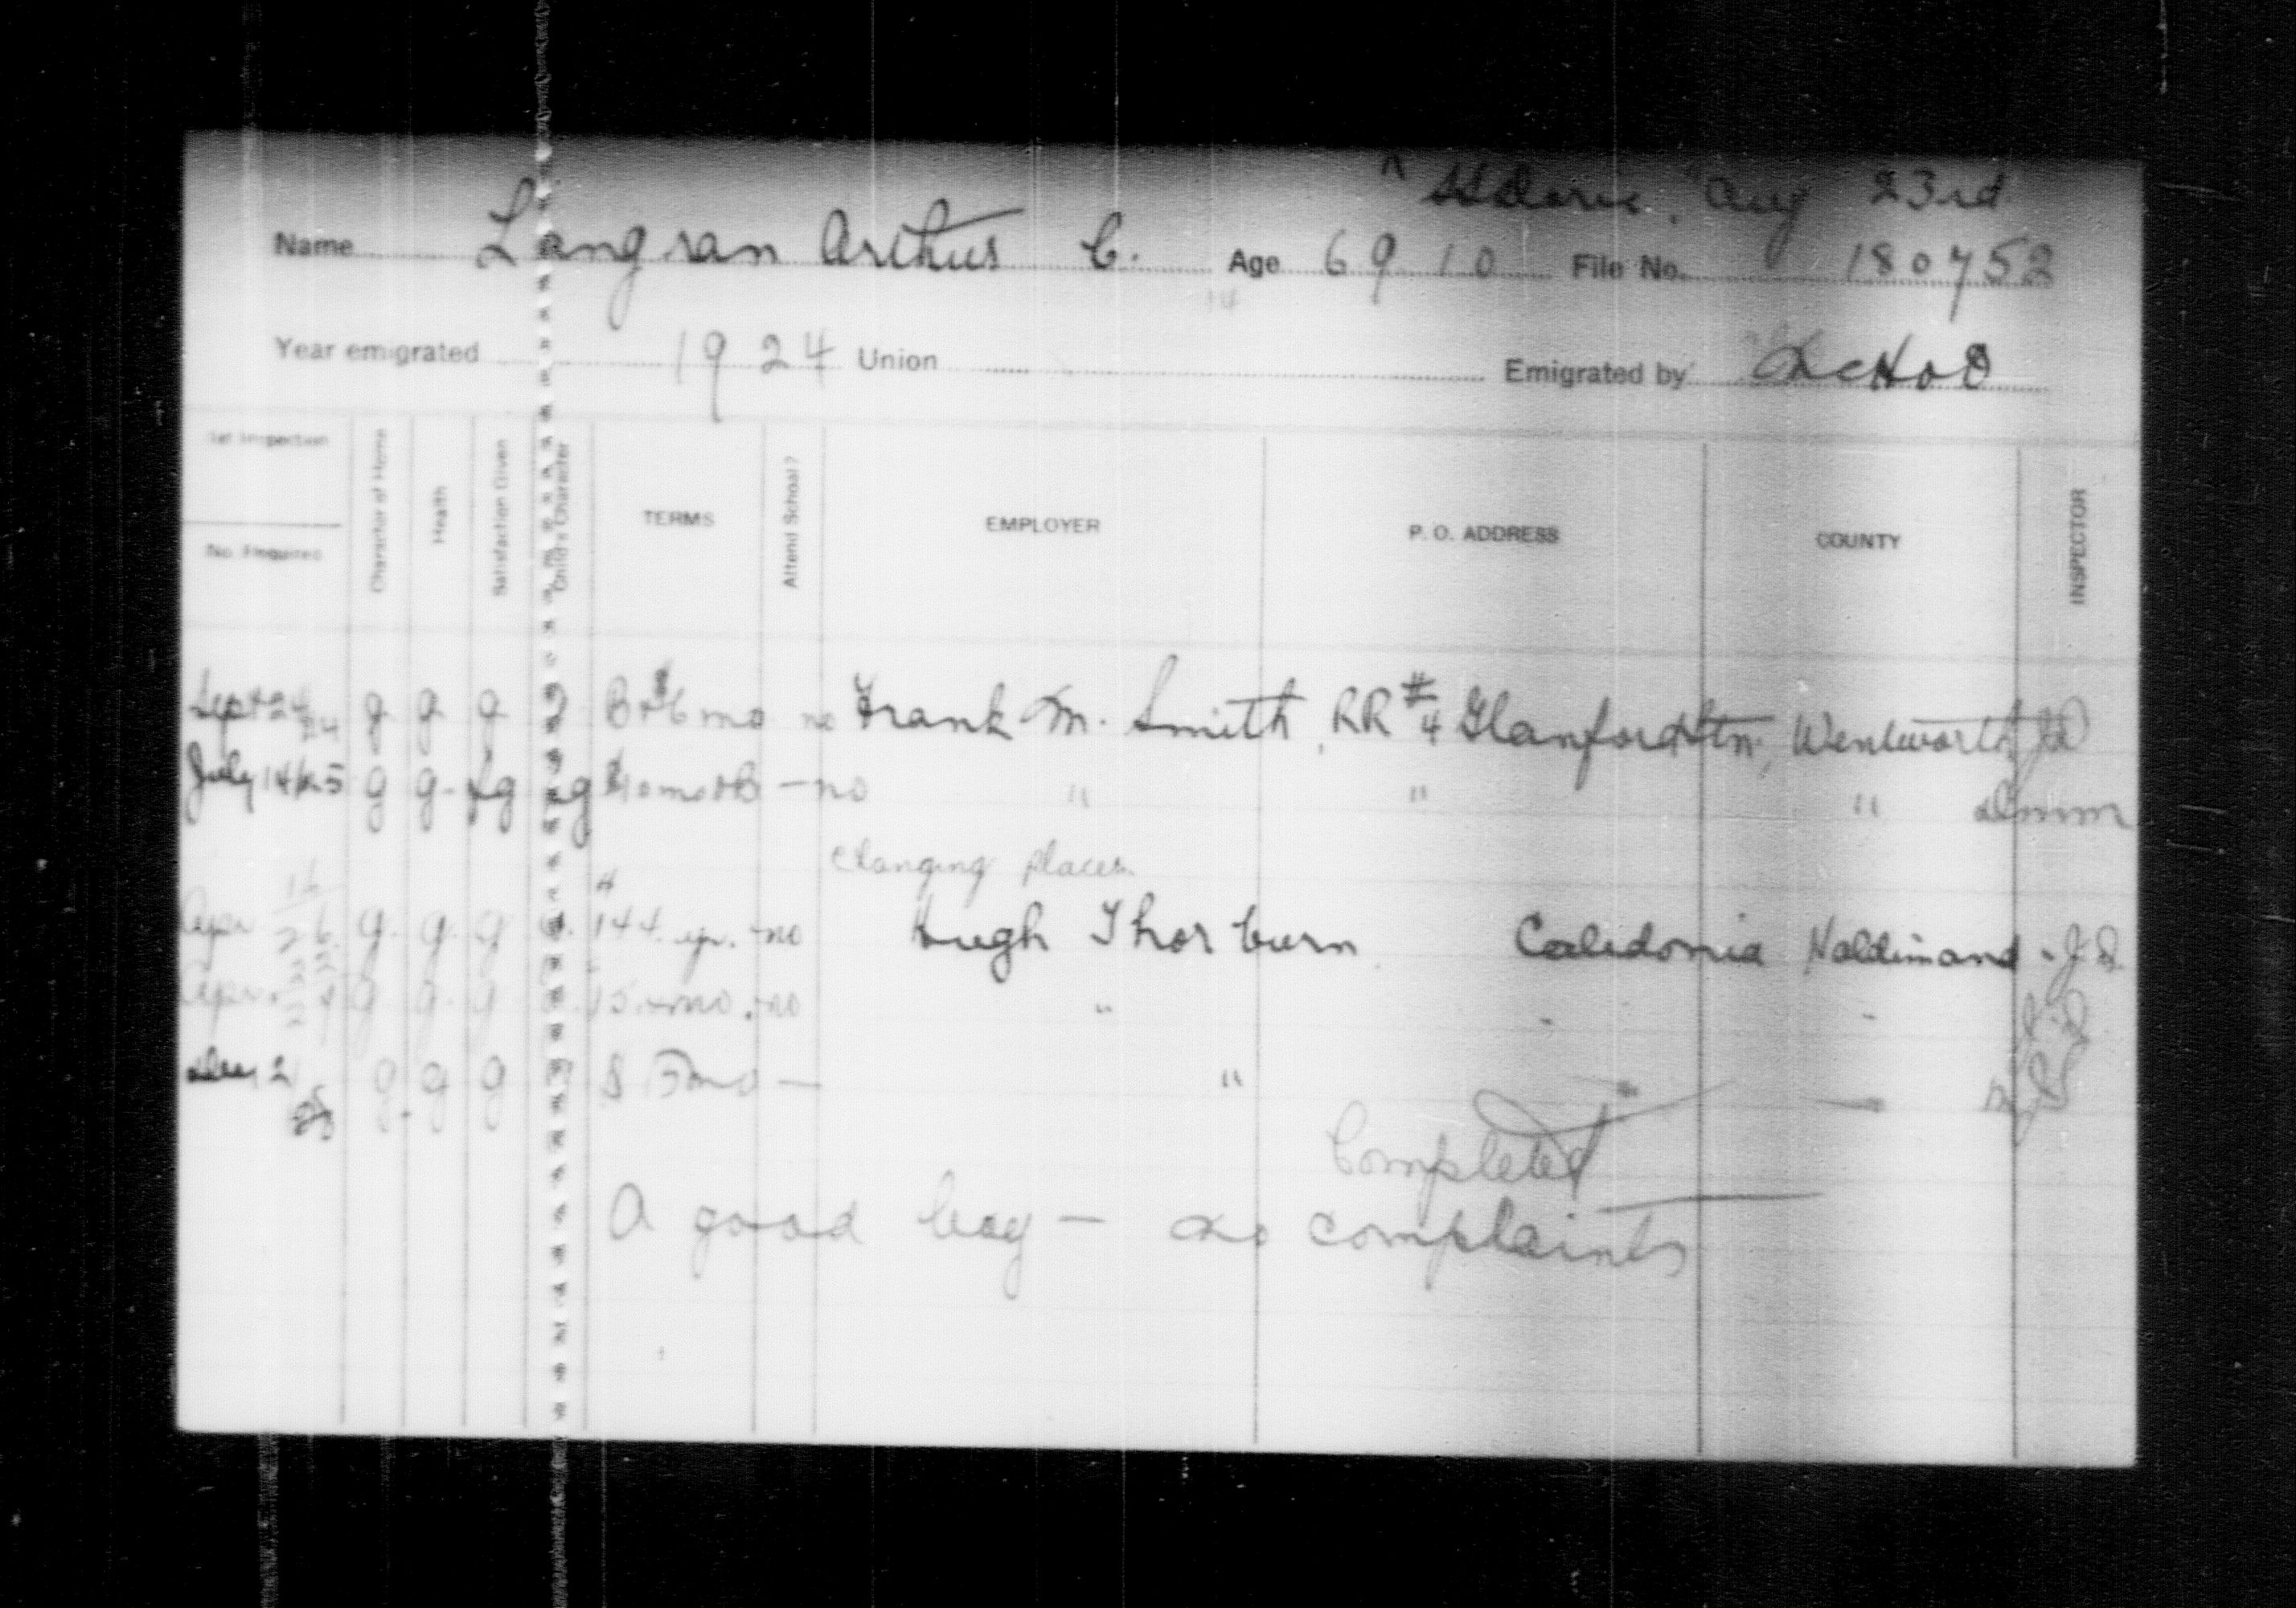 "StDoric." Aug 23rd
Name Langran Arthur C. Age 6 9 10 File No. 180752
14
Year emigrated 1924 Union Emigrated by
1st Inspection
No. Required
Character of Home
Health
Satisfaction Given
Child's Character
TERMS
Attend School?
EMPLOYER
P. O. ADDRESS
COUNTY
INSPECTOR
Sept 24 24 g g g g B+$6 mo no Frank M. Smith, RR #4 Glanford Stn, Wentworth
July 14/25 g g- fg $10mo+B - no " " "
Changing places
Apr 16 26 g. g. g 144 yr. -no Hugh Thorburn Caledonia Haldimand - J.D.
Apr. g g. g 15-mo. -no " " "
2 28 g g g $15mo — "
Completed
A good boy - no complaints